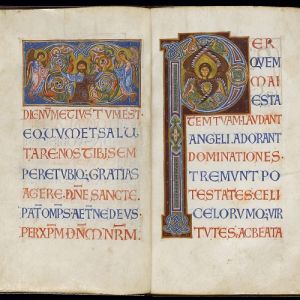 DIGNUMETIUSTUMEST
EQUUMETSALU
TARE·NOSTIBISEM
PERETUBIQ;GRATIAS
AGERE·DNE SANCTE
PATOMPS·AETNEDEUS·
PERXPM·DNM NRM·
PER
QUEM
MAI
ESTA
TEMTUAMLAUDANT
ANGELI·ADORANT
DOMINATIONES·
TREMUNTPO
TESTATES·CELI
CELORUMQ;UIR
TUTES·ACBEATA